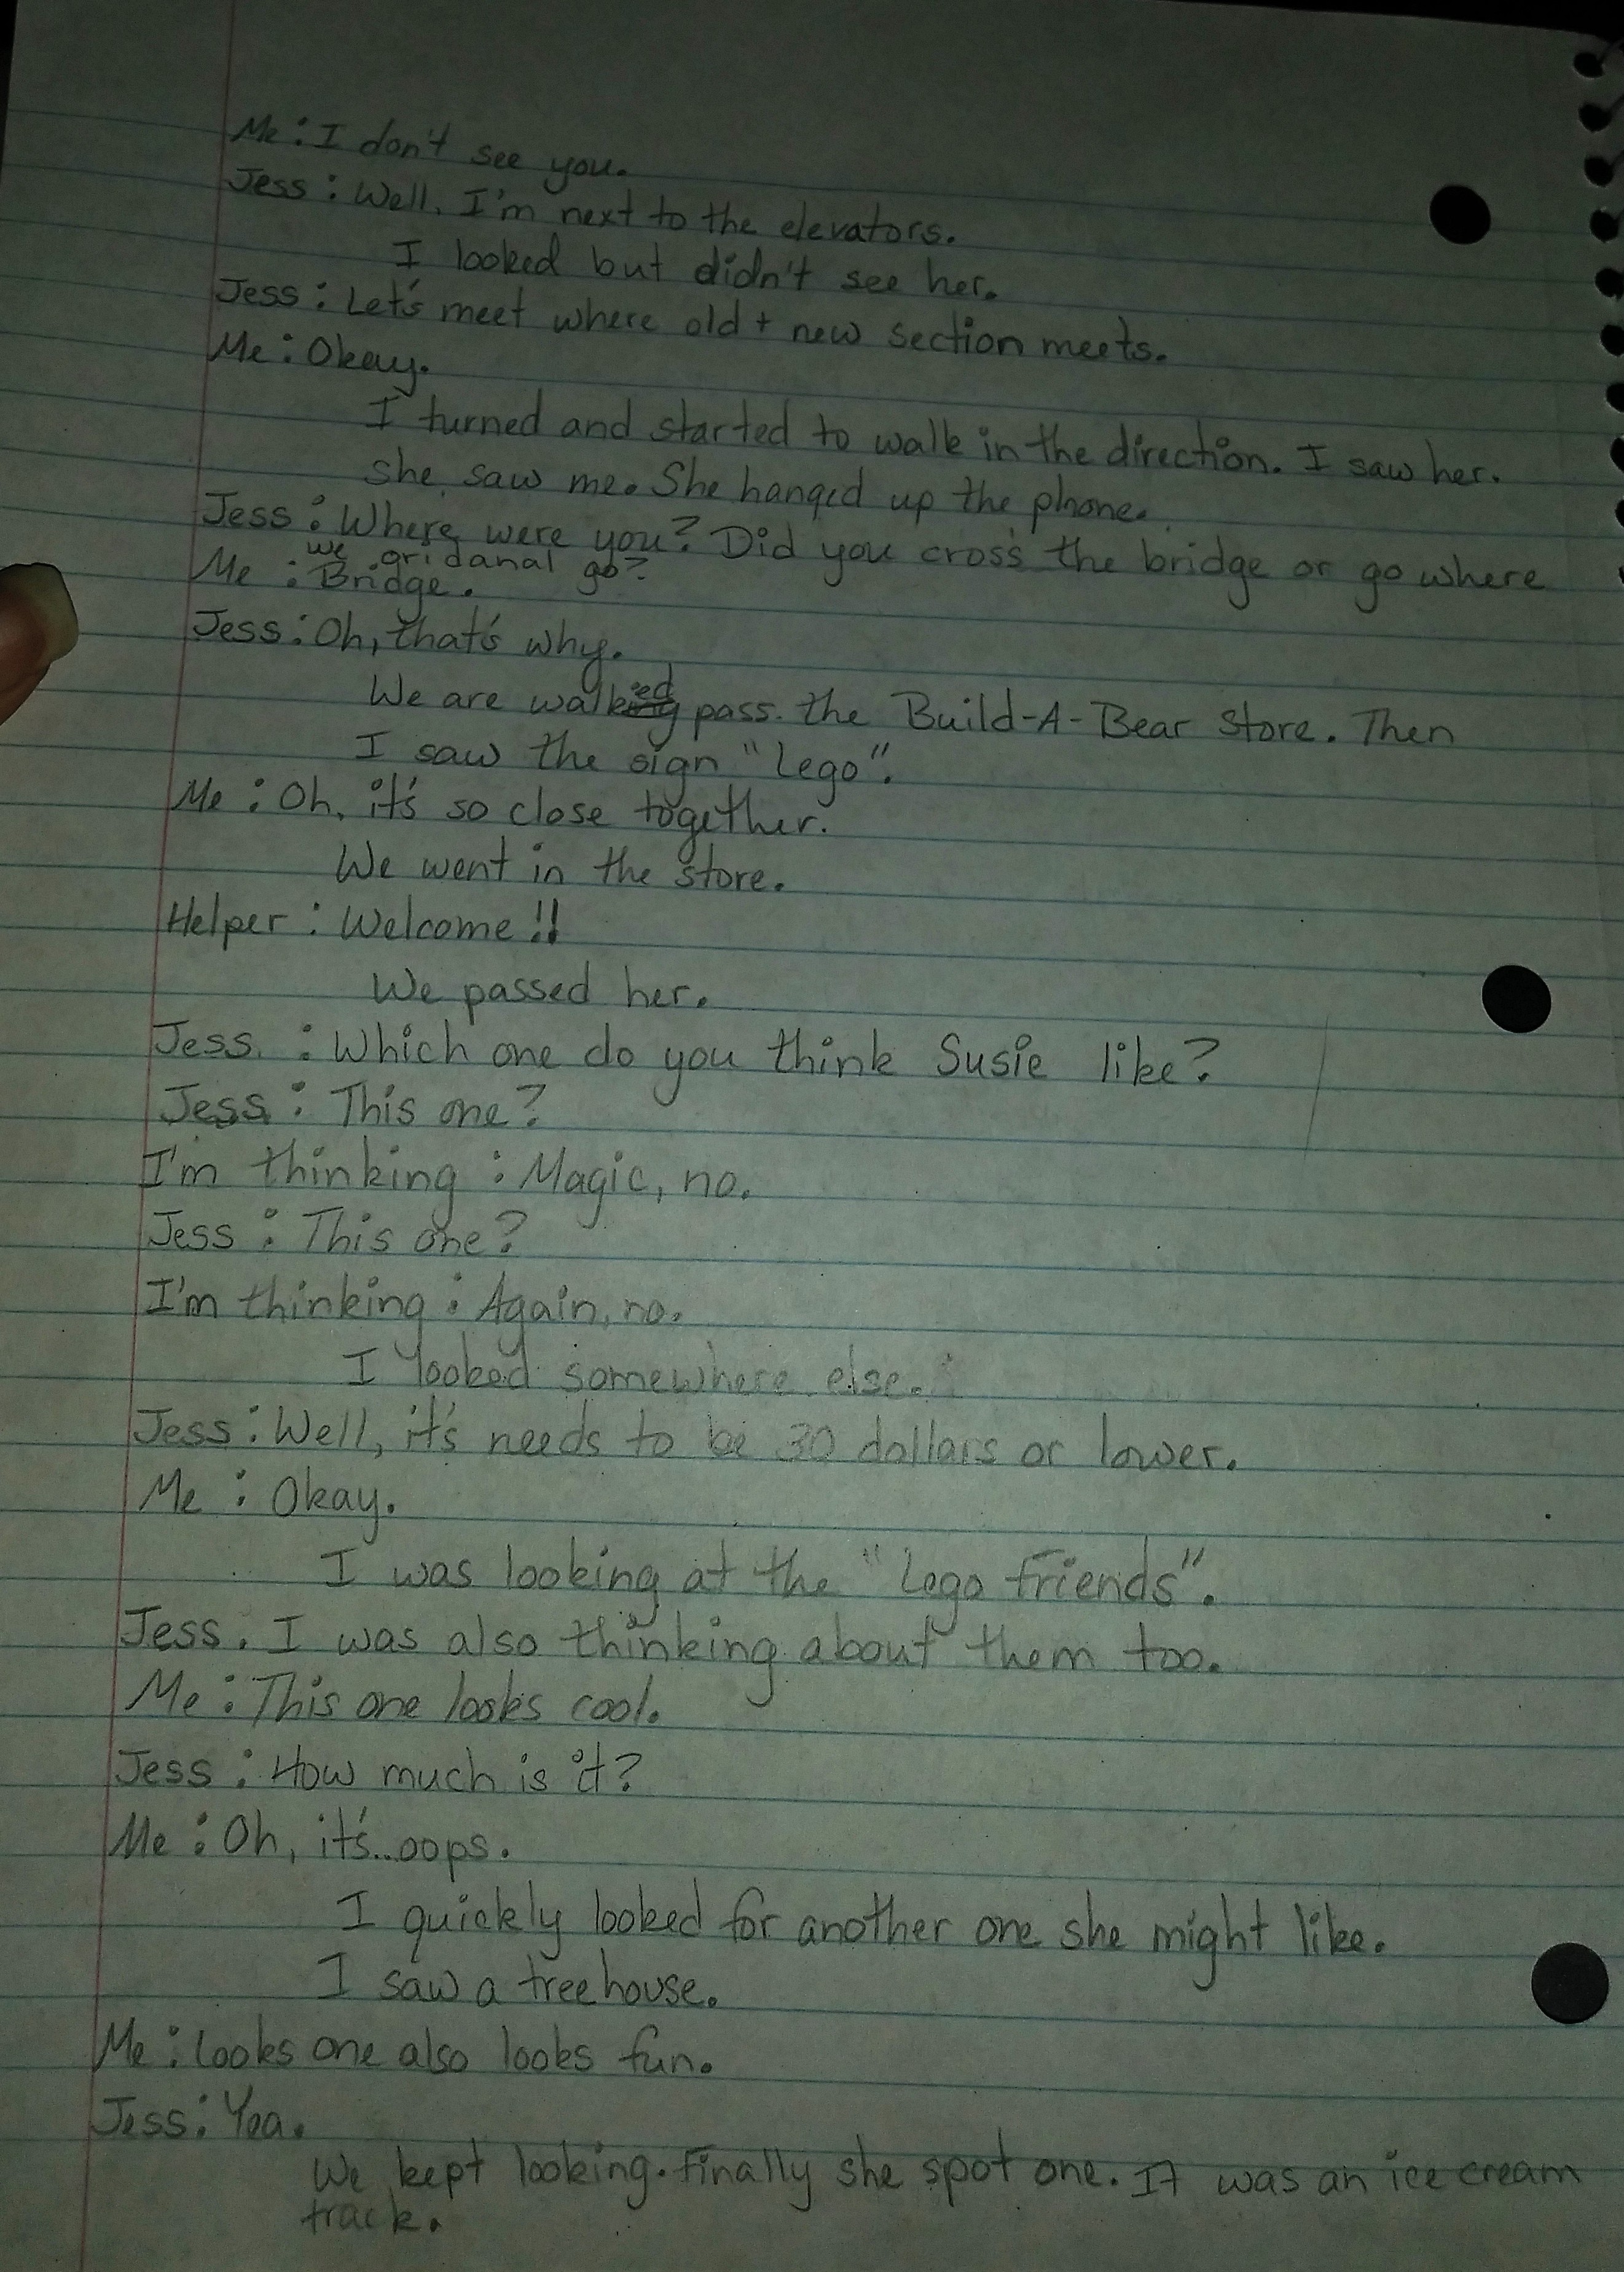 Me : I don't see you.
Jess : Well, I'm next to the elevators.
I looked but didn't see her.
Jess : Let's meet where old + new section meets.
Me : Okay.
I turned and started to walk in the direction. I saw her.
She saw me. She hanged up the phone.
Jess : Where were you? Did you cross the bridge or go where
we oridanal go?
Me : Bridge.
Jess : Oh, that's why.
We are walked pass the Build-A-Bear Store. Then
I saw the sign "Lego".
Me : Oh, it's so close together.
We went in the store.
Helper : Welcome!!
We passed her.
Jess : Which one do you think Susie like?
Jess : This one?
I'm thinking : Magic, no.
Jess : This one?
I'm thinking : Again, no.
I looked somewhere else.
Jess : Well, it's needs to be 30 dollars or lower.
Me : Okay.
I was looking at the "Lego Friends".
Jess. I was also thinking about them too.
Me : This one looks cool.
Jess : How much is it?
Me : Oh, it's...oops.
I quickly looked for another one she might like.
I saw a treehouse.
Me : Looks one also looks fun.
Jess : Yea.
We kept looking. Finally she spot one. It was an ice cream
track.